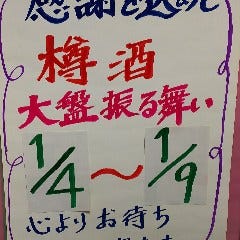 感謝を込めて
樽酒
大盤振る舞い
1/4～1/9
心よりお待ち